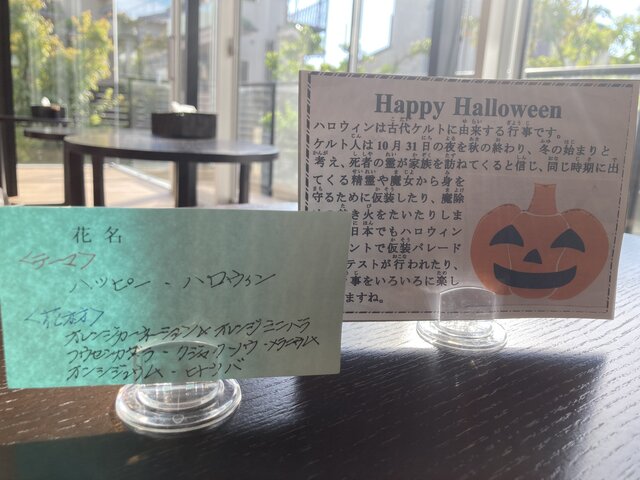 花名
<テーマ>
ハッピー・ハロウィン
<花材>
オレンジカーネーション・オレンジミニバラ
フウセンカヅラ・クジャクソウ・
オンシジュウム・ヒトツバ
Happy Halloween
ハロウィンは古代ケルトに由来する行事です。
ケルト人は10月31日の夜を秋の終わり、冬の始まりと
考え、死者の霊が家族を訪ねてくると信じ、同じ時期に出
てくる精霊や魔女から身を
守るために仮装したり、魔除
き火をたいたりしま
日本でもハロウィン
ントで仮装パレード
テストが行われたり、
事をいろいろに楽し
ますね。